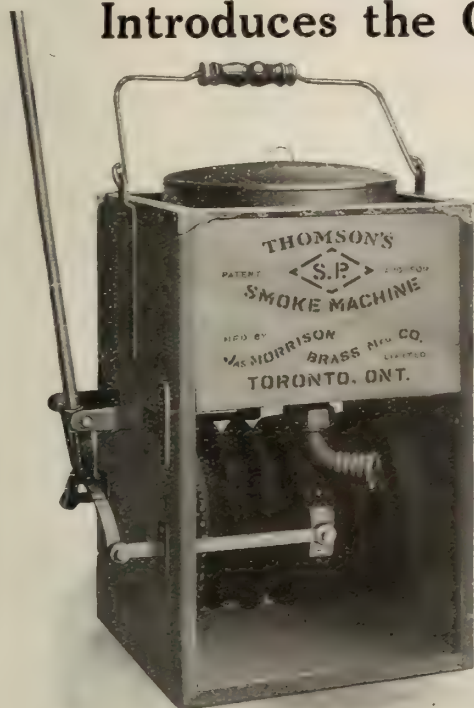 Introduces the
THOMSON'S
PATENT S.P.
SMOKE MACHINE
MFD BY
JAS MORRISON
BRASS MFG CO.
LIMITED
TORONTO, ONT.